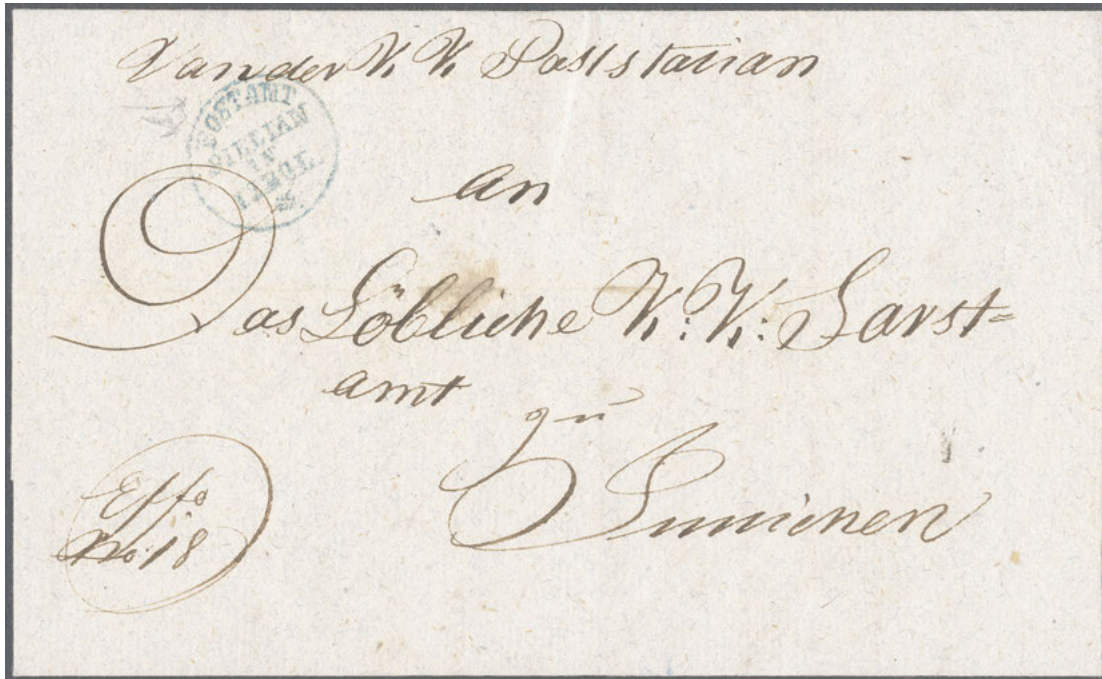 Von der K. K. Poststation
POSTAMT
SILLIAN
IN
TIROL
an
Das Löbliche K: K: Forst=
amt
zu
Innichen
Exffo
No: 18